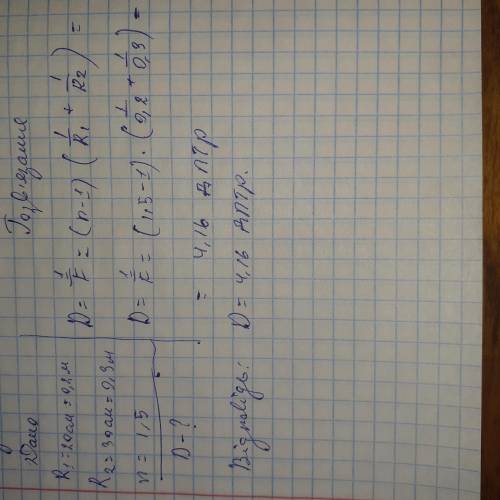 Дано
R₁ = 20см = 0,2м
R₂ = 30см = 0,3м
n = 1,5
D - ?
Розв'язання
D = 1/F = (n-1) (1/R₁ + 1/R₂) =
D = 1/F = (1,5-1) · (1/0,2 + 1/0,3) =
= 4,16 дптр
Відповідь: D = 4,16 дптр.